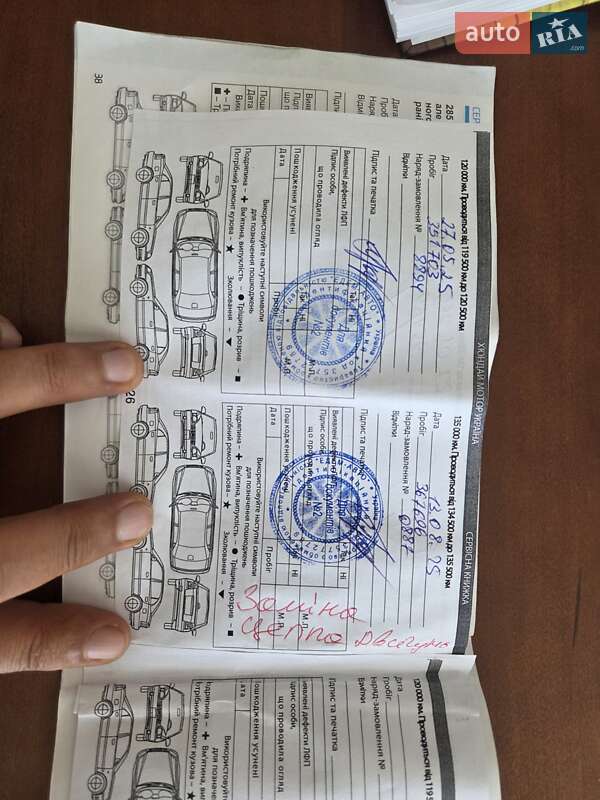 auto RIA.com
38
СЕР
285
але
ного
рані
Дата
Проб
Наря
Відмі
Підпис
Виявл
Підпис
що п
Пошк
Дата
120 000 км. Проводиться від 119 500 км до 120 500 км
Дата 27.05.25
Пробіг 351703
Наряд-замовлення № 8894
Відмітки
Підпис та печатка
Виявлені дефекти ЛФП Так Ні
Підпис особи,
що проводила огляд
Пошкодження усунені Так Ні
Дата Пробіг М.П.
Використовуйте наступні символи
для позначення пошкоджень
Подряпина – + Вм'ятина, випуклість – ● Тріщина, розрив – ■
Потрібний ремонт кузова – ★ Зколювання – ▼
ХЮНДАЙ МОТОР УКРАЇНА
26
135 000 км. Проводиться від 134 500 км до 135 500 км
Дата 13.08.25
Пробіг
Наряд-замовлення №
Відмітки
Підпис та печатка
Виявлені дефекти
Підпис особи,
Пошкодження
Дата Пробіг М.П.
Використовуйте наступні символи
для позначення пошкоджень
Подряпина – + Вм'ятина, випуклість – ● Тріщина, розрив – ■
Потрібний ремонт кузова – ★ Зколювання – ▼
СЕРВІСНА КНИЖКА
Для
документів
№2
Заміна
120 000 км. Проводиться від 119 5
Дата
Пробіг
Наряд-замовлення №
Відмітки
Підпис та печатка
Виявлені дефекти ЛФП
Підпис особи,
що проводила огляд
Пошкодження усунені
Дата
Використовуйте
для позн
Подряпина – + Вм'ятина, випук
Потрібний ремонт кузова – ★